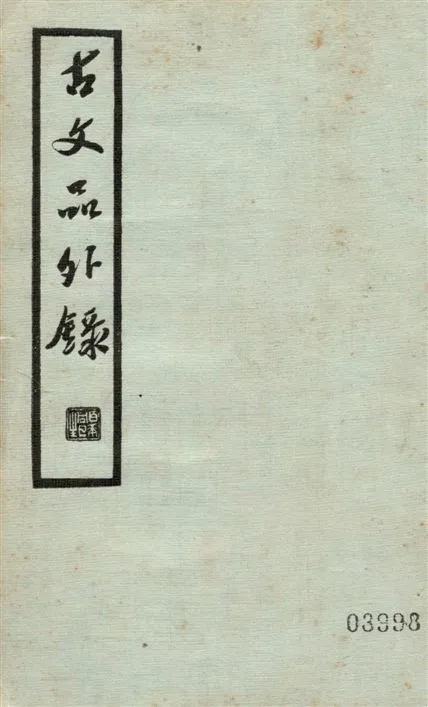 古文品外錄
03998